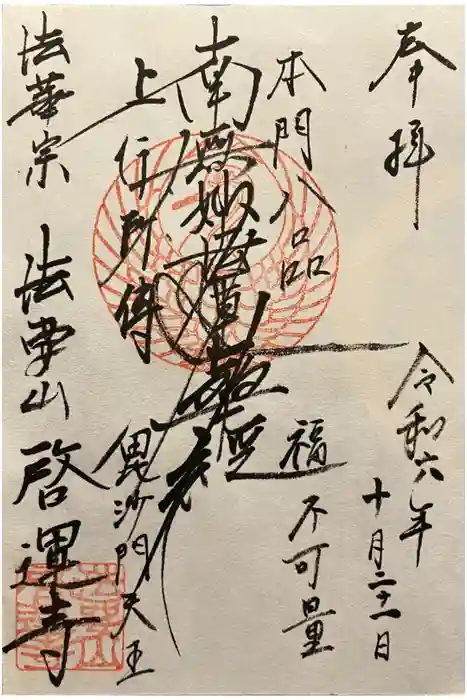 奉拝
令和六年
十月二十一日
本門八品
福不可量
南無妙法蓮華経
上行所傳
毘沙門天王
法華宗
法要山
啓運寺